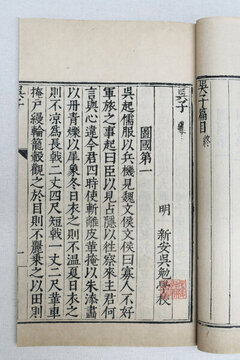 吳子篇目 終
吳子
明 新安吳勉學校
圖國第一
吳起儒服以兵機見魏文侯文侯曰寡人不好
軍旅之事起曰臣以見占隱以往察來主君何
言與心違今君四時使斬離皮革掩以朱漆畫
以丹青爍以犀象冬日衣之則不溫夏日衣之
則不凉爲長戟二丈四尺短戟一丈二尺革車
掩戶縵輪籠轂觀之於目則不麗乘之以田則
吳子
一